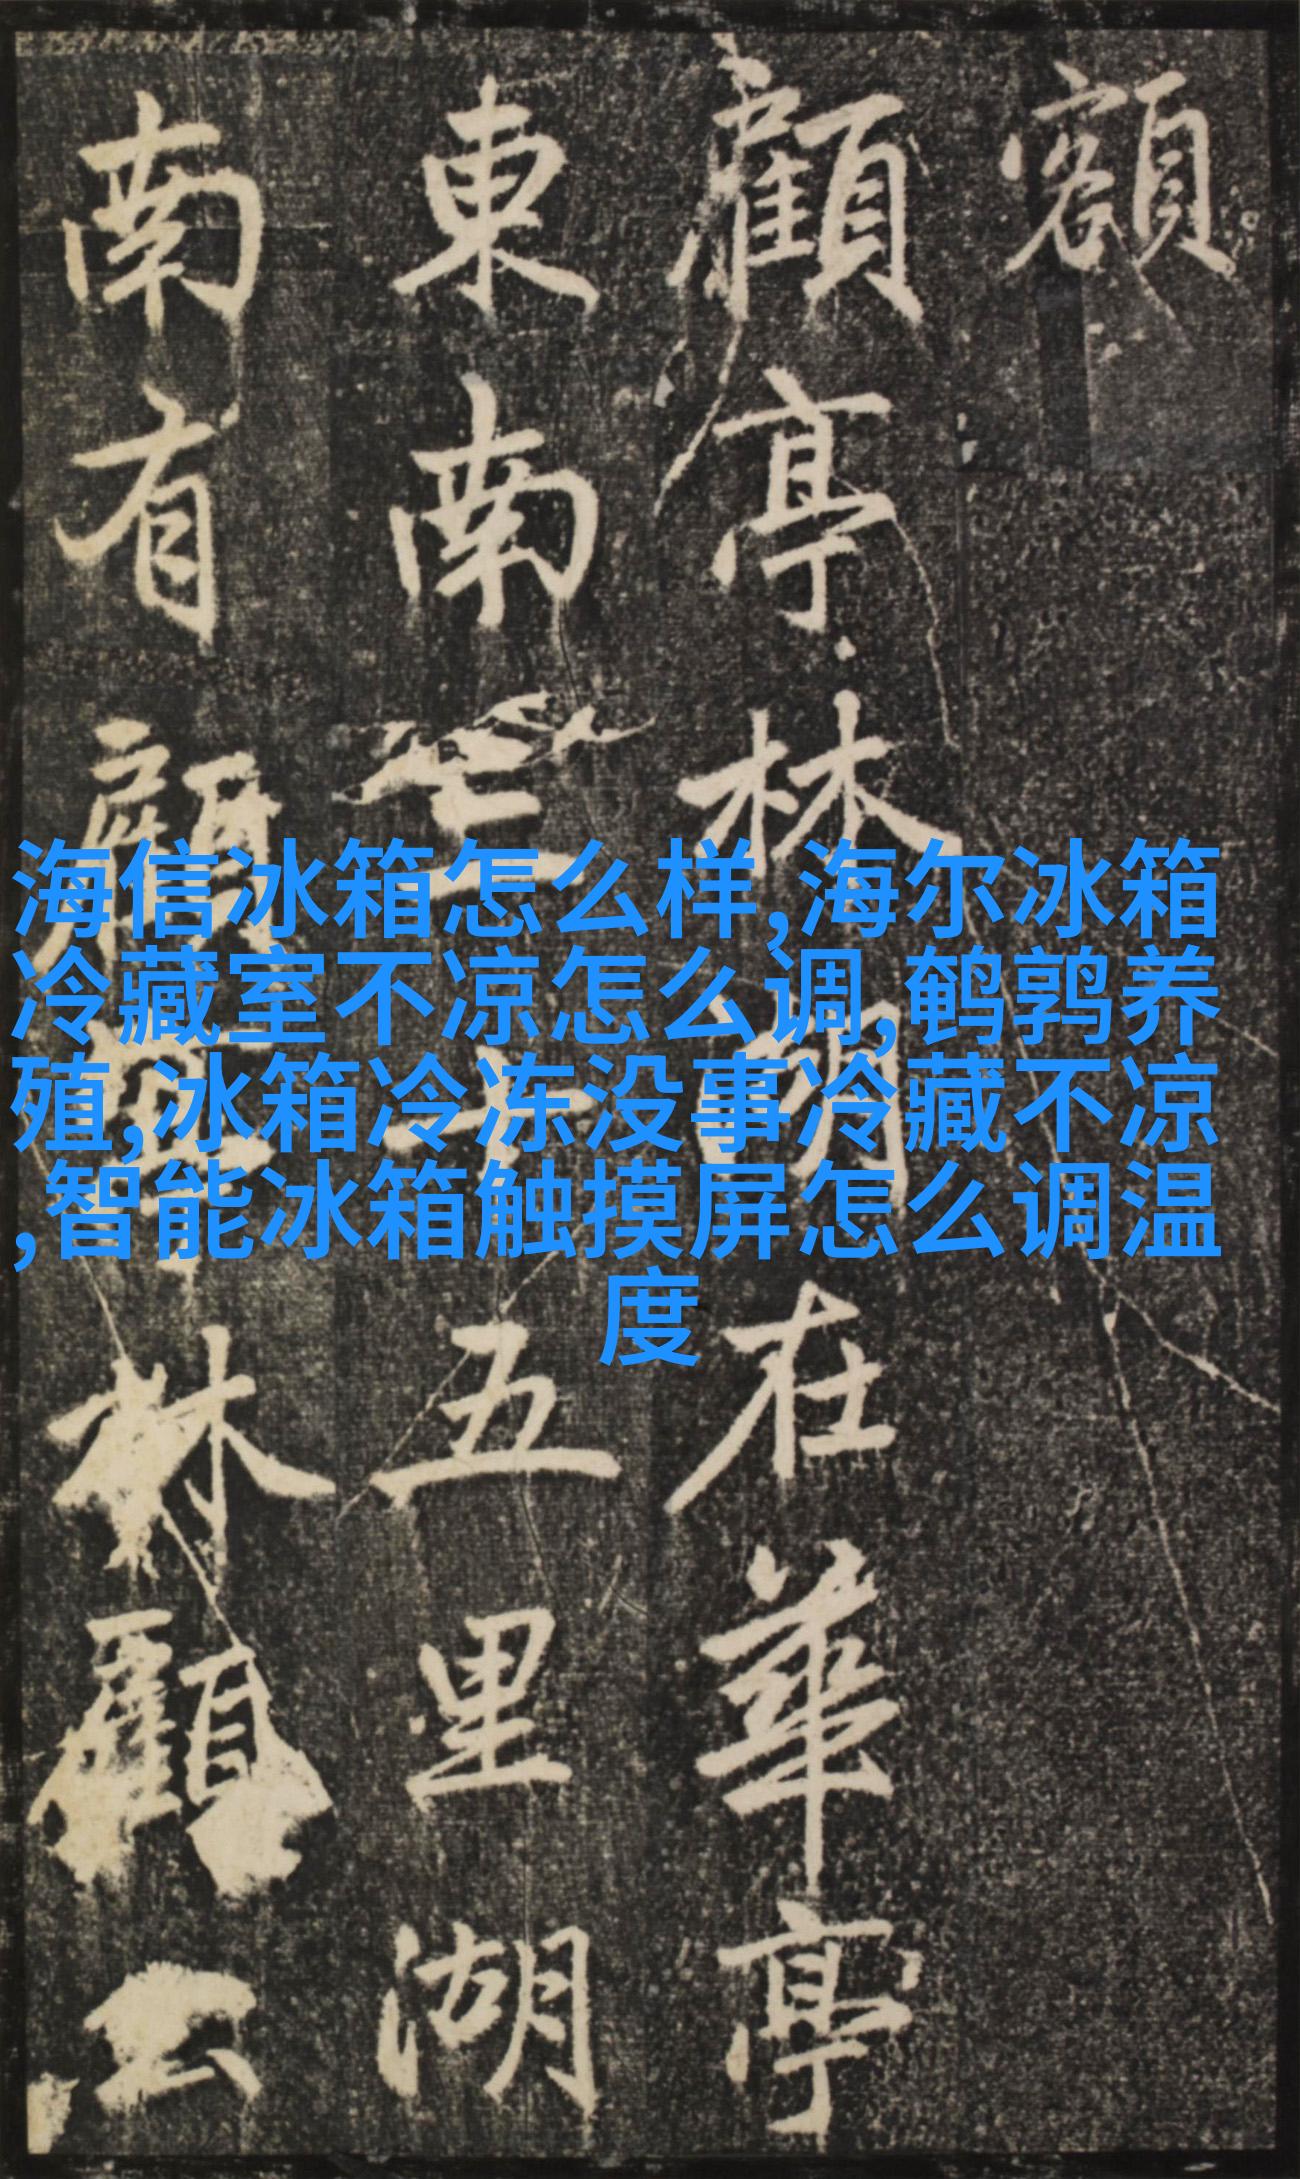 額
顧亭林湖在華亭
東南三十五里湖
南有顧林顧云
海信冰箱怎么样,海尔冰箱
冷藏室不凉怎么调,鹌鹑养
殖,冰箱冷冻没事冷藏不凉
,智能冰箱触摸屏怎么调温
度